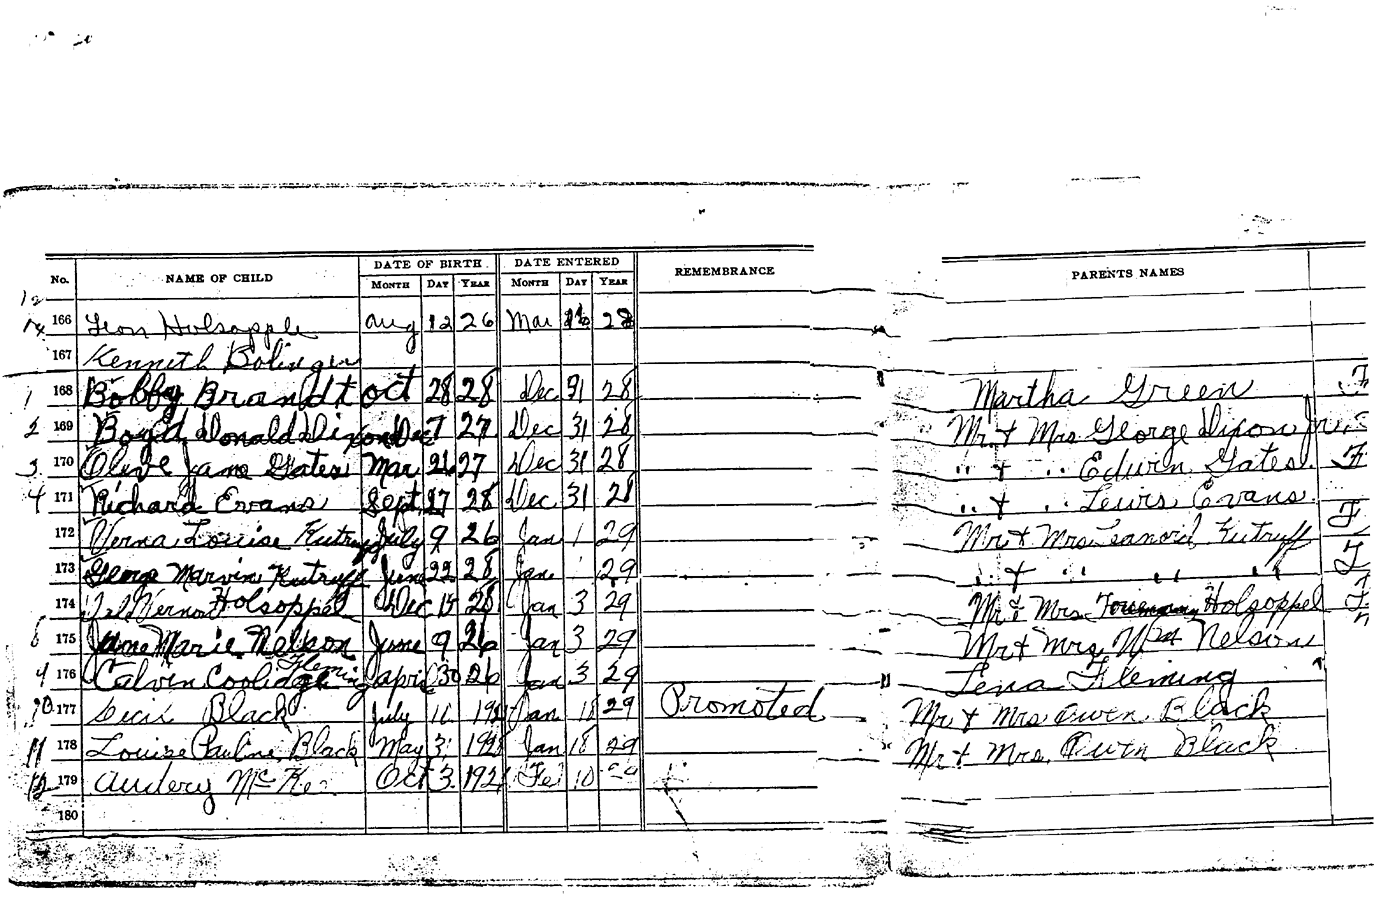 No. NAME OF CHILD DATE OF BIRTH DATE ENTERED REMEMBRANCE PARENTS NAMES
MONTH DAY YEAR MONTH DAY YEAR
12
14 166 Leon Holsapple Aug 12 26 Mar 28
167 Kenneth Bolinger
1 168 Bobby Brandt Oct 28 28 Dec 31 28 Martha Green F
2 169 Boyd Donald Dixon Dec 7 27 Dec 31 28 Mr. & Mrs George Dixon Jr.
3. 170 Olive Jane Gates Mar 27 Dec 31 28 " & " Edwin Gates. F
4 171 Richard Evans Sept 28 Dec 31 28 " & " Lewis Evans.
172 Verna Louise Kutruff July 9 26 Jan 1 29 Mr & Mrs Leanord Kutruff F
173 George Marvin Kutruff June 22 28 Jan 1 29 " & " " " F
174 Vernon Holsoppel Dec 15 28 Jan 3 29 Mr & Mrs Holsoppel F
175 Jane Marie Nelson June 9 26 Jan 3 29 Mr & Mrs Wm Nelson
4 176 Calvin Coolidge Fleming April 30 26 Jan 3 29 Lena Fleming
10 177 Black July 192 Jan 18 29 Promoted Mr & Mrs Owen Black
11 178 Louise Pauline Black May 3 192 Jan 18 29 Mr & Mrs. Owen Black
12 179 Audery McKee Oct 3. 192 Fe 10
180